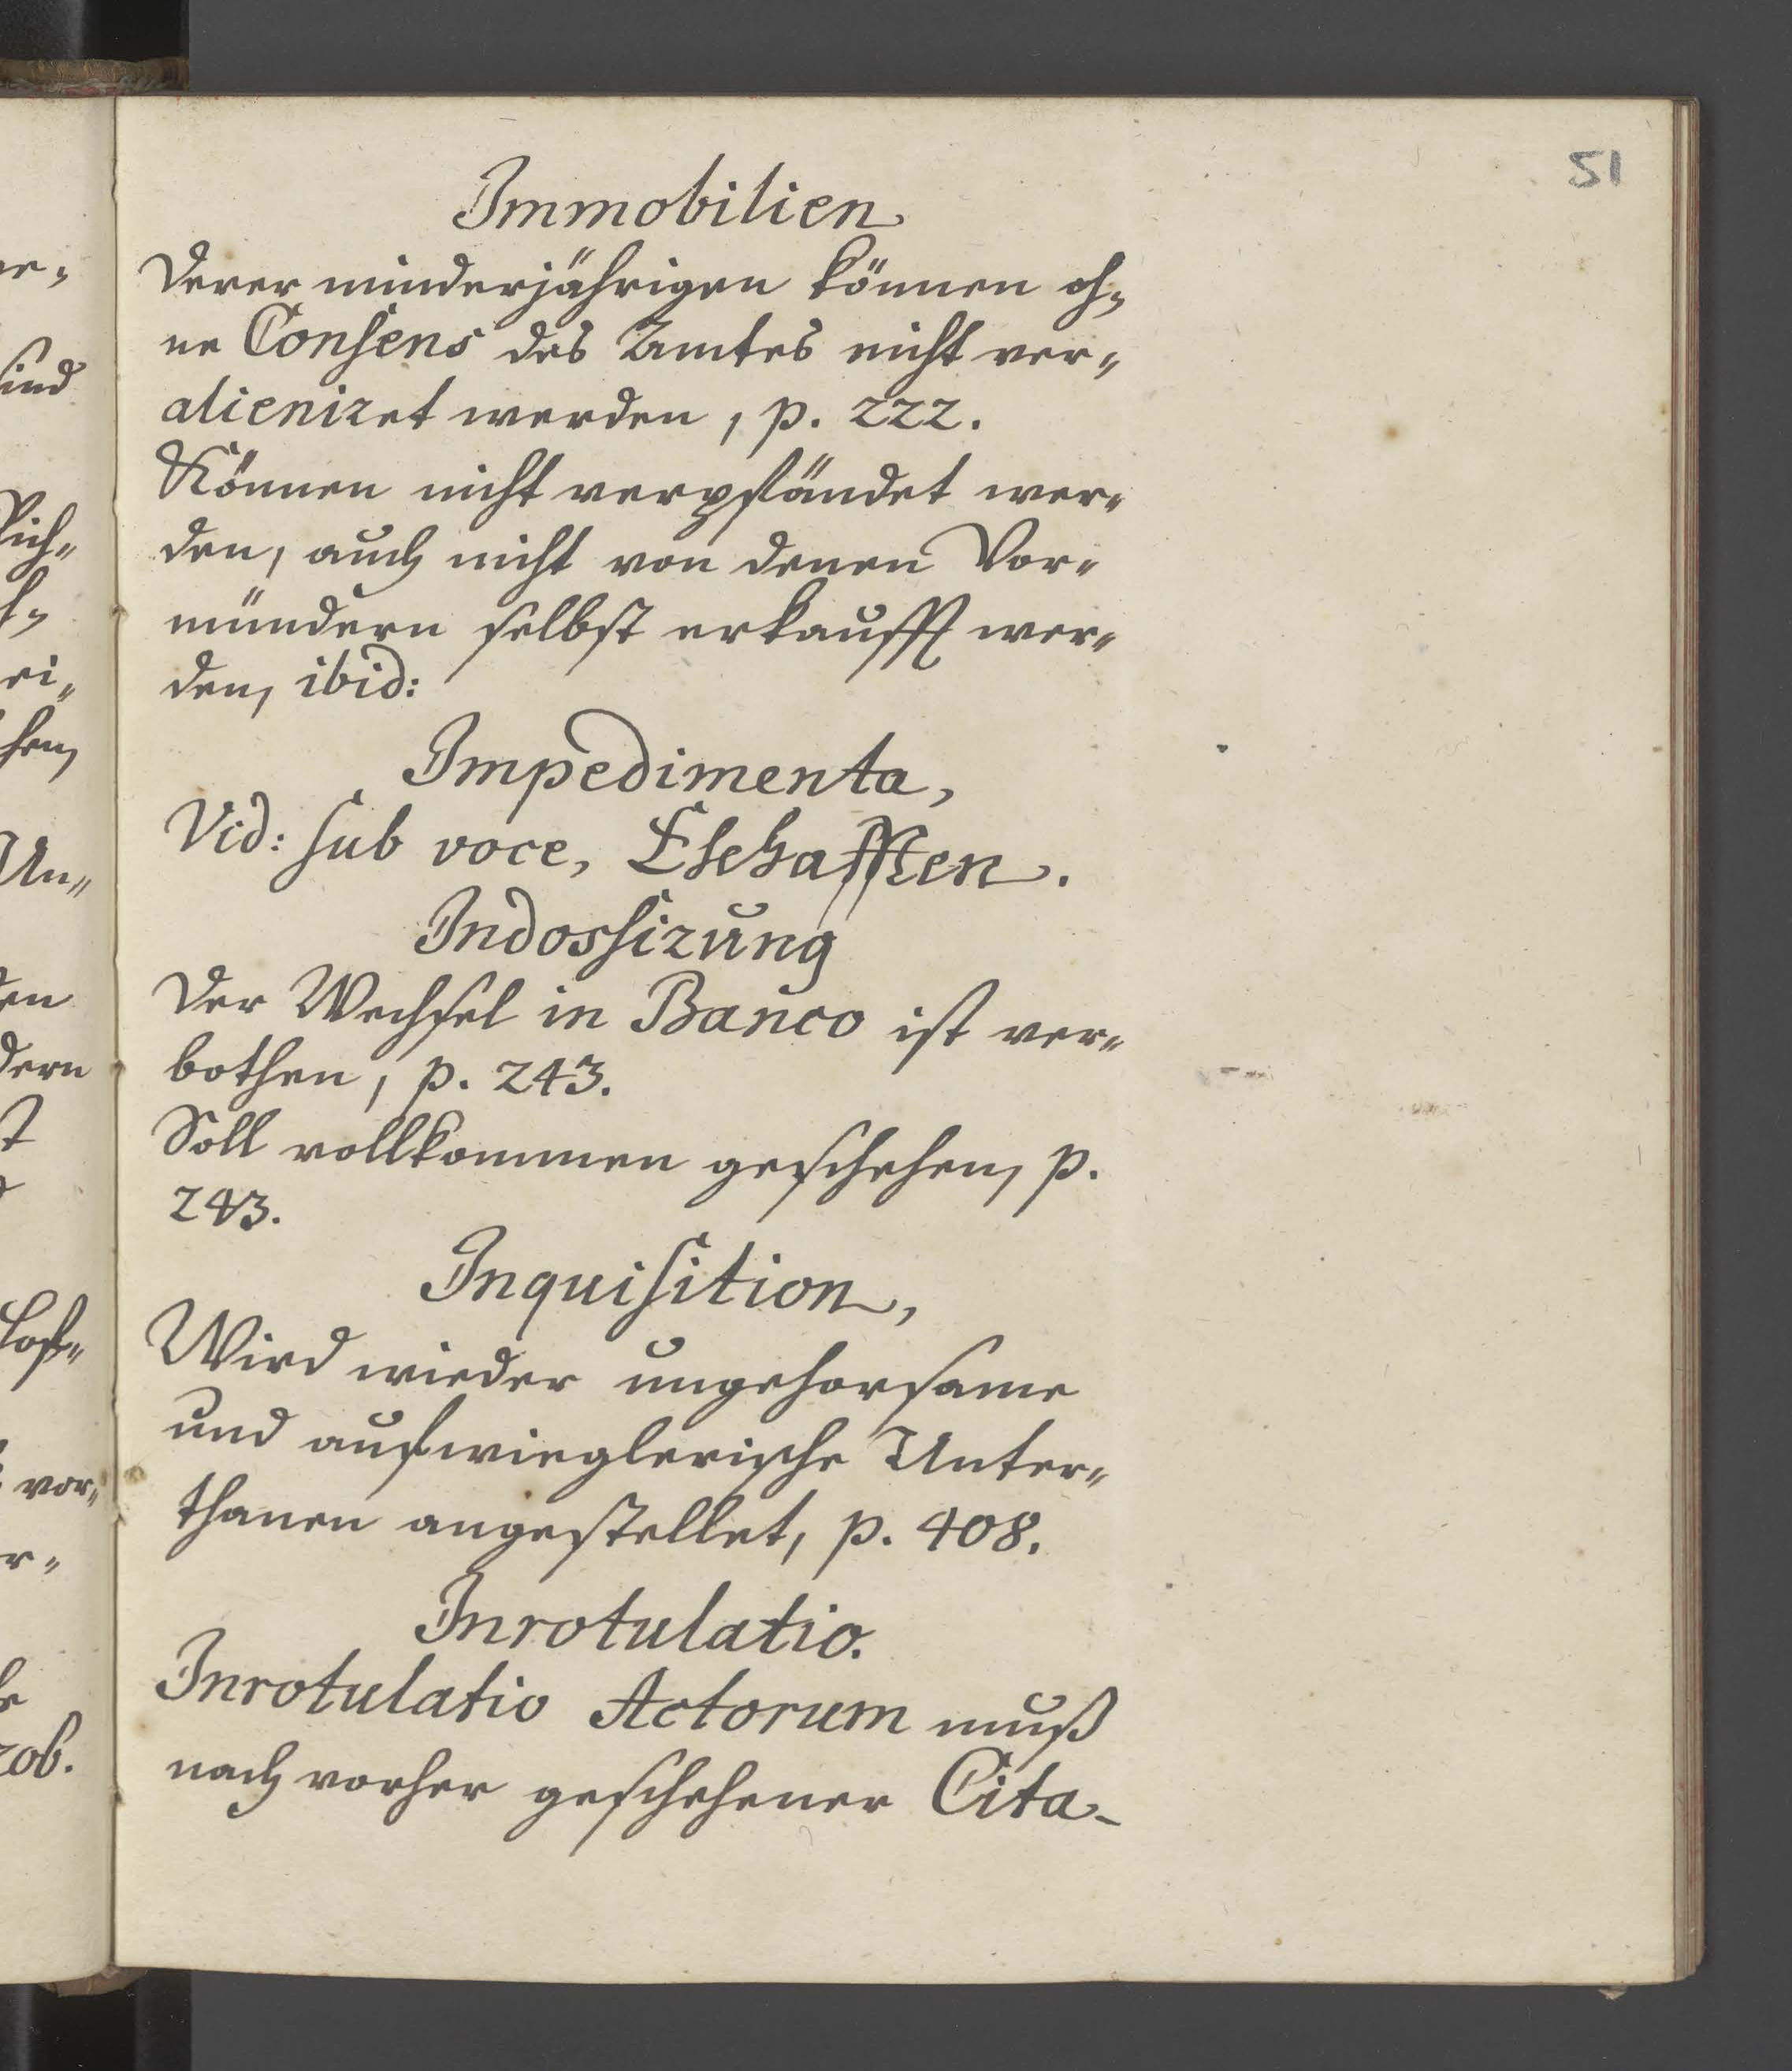 51
Immobilien
Derer minderjährigen können oh„
ne Consens des Amtes nicht ver„
alieniret werden, p. 222.
Können nicht verpfändet wer„
den, auch nicht von denen Vor„
mündern selbst erkaufft wer„
den, ibid:
Impedimenta,
Vid: sub voce, Ehehafften.
Indossirung
Der Wechsel in Banco ist ver„
bothen, p. 243.
Soll vollkommen geschehen, p.
243.
Inquisition,
Wird wieder ungehorsame
und aufwieglerische Unter„
thanen angestellet, p. 408.
Inrotulatio.
Inrotulatio Actorum muß
nach vorher geschehener Cita-